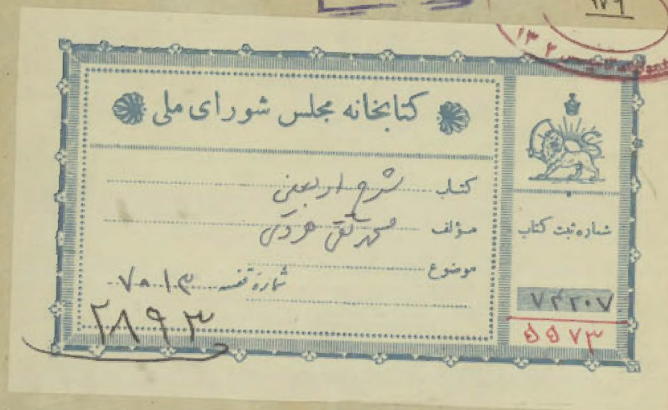 ۱۷۹
۱۳۰۲
کتابخانه مجلس شورای ملی
کتاب شرح اربعین
مؤلف محمد تقی هروی
موضوع
شماره قفسه ۷۸۱۳
۲۸۹۳
شماره ثبت کتاب
۷۲۲۰۷
۵۵۷۳